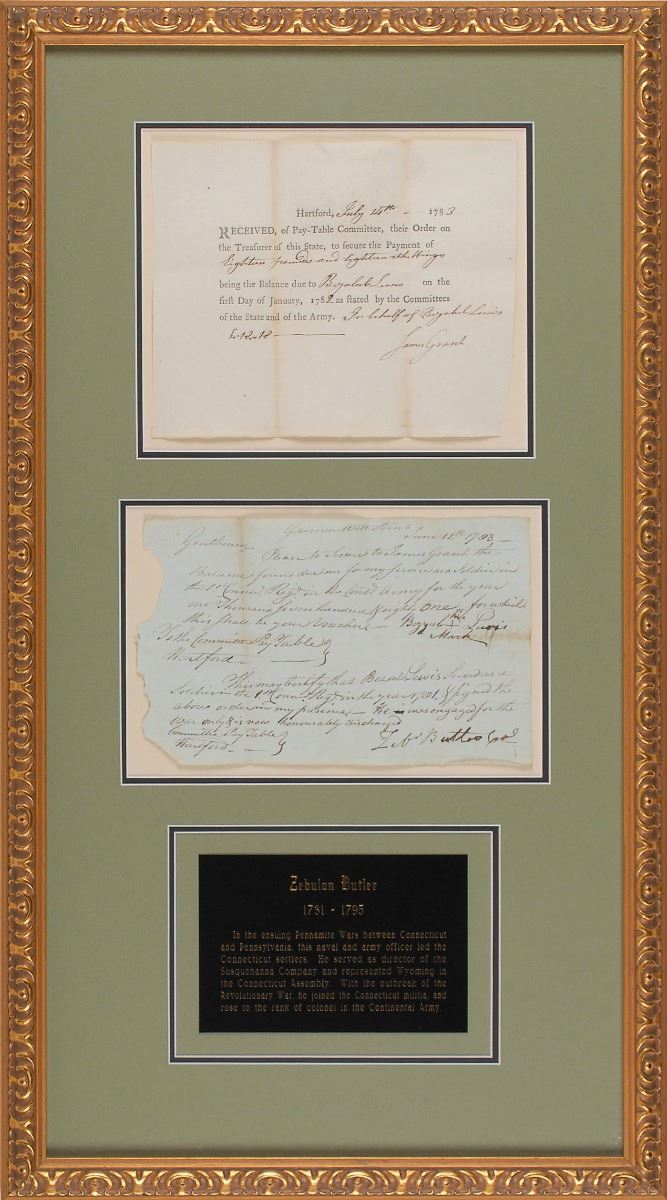 Hartford, July 14th - 1783
RECEIVED, of Pay-Table Committee, their Order on
the Treasurer of this State, to secure the Payment of
Eighteen pounds and Eighteen shillings
being the Balance due to Bezaleel Lewis on the
first Day of January, 1782 as stated by the Committees
of the State and of the Army. In behalf of Bezaleel Lewis
£18.18
James Grant
Garrison West Point
June 11th 1783
Gentlemen
Please to Secure to James Grant the
Balance found due me for my Service as a Soldier in
the 1st Connect Regt in the Contl Army for the year
one Thousand Seven hundred & eighty One for which
this shall be your Voucher
his
Lewis
Mark
To the Committee Pay Table
Hartford
This may Certify that Lewis Served as a
Soldier in the 1st Conn. Regt in the year 1781, & signed the
above order in my presence - He was engaged for the
war only & is now honourably discharged
Committee Pay Table
Hartford
Zebn Butler Col
Zebulon Butler
1731 - 1795
In the ensuing Pennamite Wars between Connecticut
and Pennsylvania, this naval and army officer led the
Connecticut settlers. He served as director of the
Susquehanna Company and represented Wyoming in
the Connecticut Assembly. With the outbreak of the
Revolutionary War, he joined the Connecticut militia, and
rose to the rank of colonel in the Continental Army.